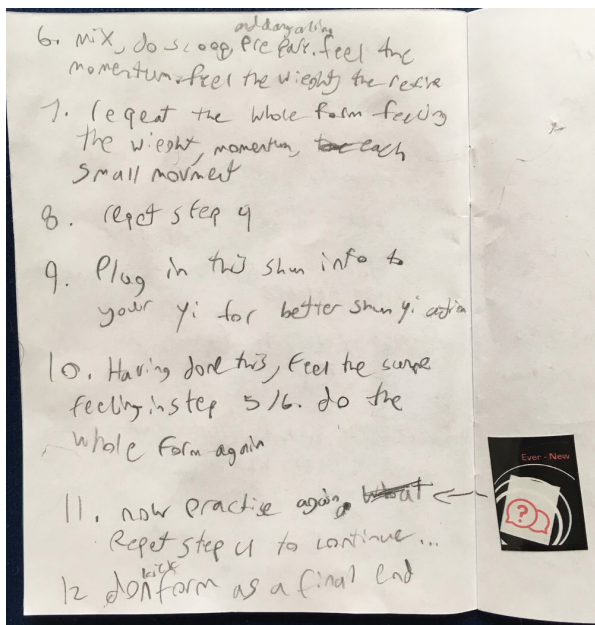 and danyorline
6. mix, do scoop, prepair. feel the
momentum. feel the wieght, the
7. repeat the whole form feeling
the wieght, momentum, each
small movment
8. repet step 4
9. Plug in this shun info to
your yi for better shun yi action
10. Having done this, feel the same
feeling in step 5/6. do the
whole form again
11. now practise again,
Repet step 4 to continue...
kick
12 form as a final end
Ever-New